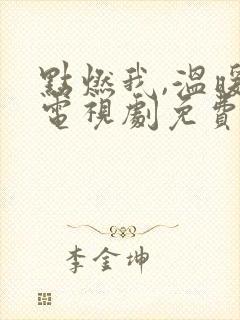 點燃我,溫暖
電視劇免費
李金坤